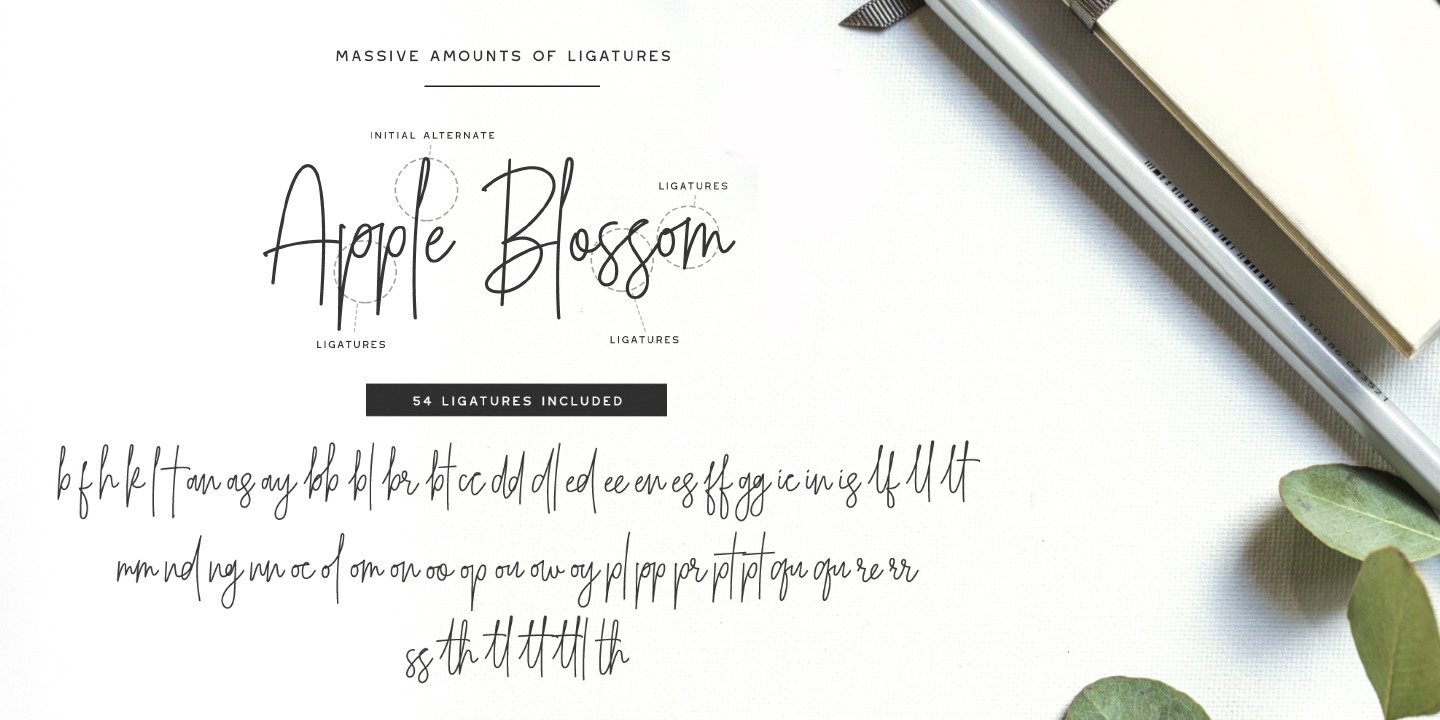 MASSIVE AMOUNTS OF LIGATURES
INITIAL ALTERNATE
LIGATURES
Apple Blossom
LIGATURES
LIGATURES
54 LIGATURES INCLUDED
b f h k l t an as ay bb bl br bt cc dd dl ed ee en es ff gg ic in is lf ll lt
mm nd ng nn oc of om on oo op ou ow oy pl pp pr pt pt qu qu re rr
ss th tl tt ttl th